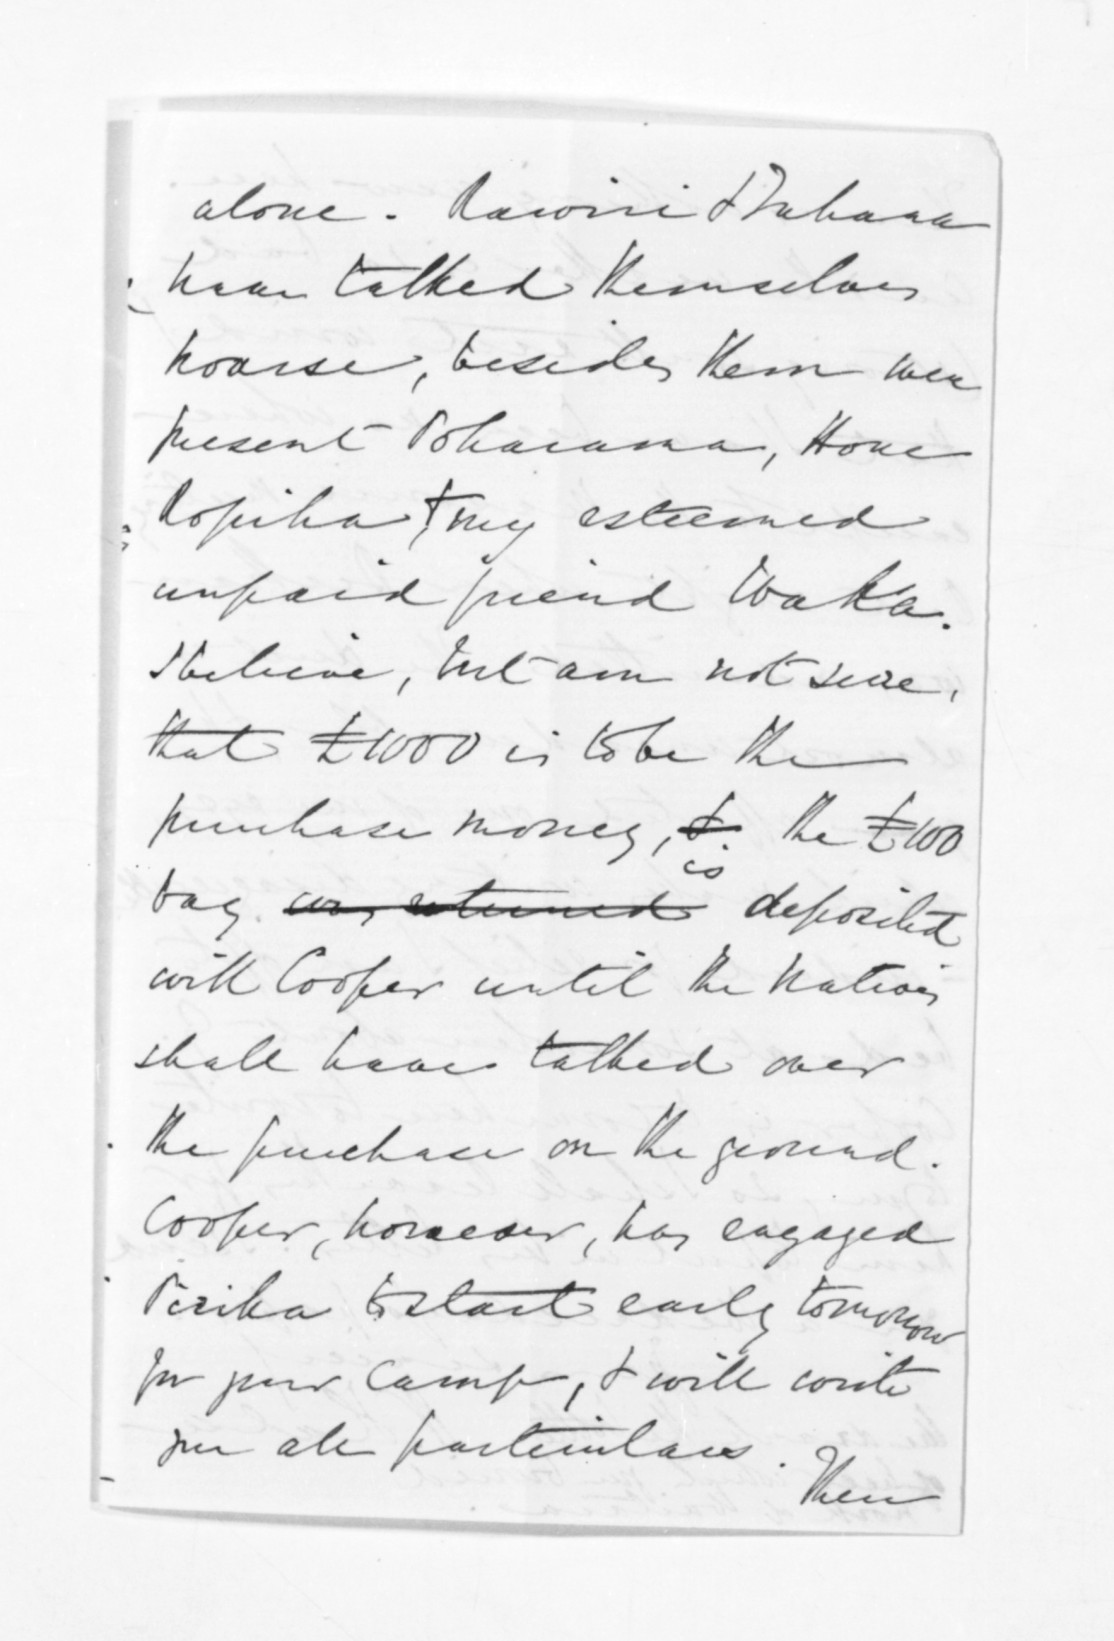 alone. Rawiri & Tahana
have talked themselves
hoarse, besides them were
present Poharama, Hone
Ropiha & my esteemed
unpaid friend Waka.
I believe, but am not sure,
that £1000 is to be the
purchase money, & the £100
bag was returned is deposited
with Cooper until the Natives
shall have talked over
the purchase on the ground.
Cooper, however, has engaged
Piriha to start early tomorrow
for your camp, & will write
you all particulars.
Then